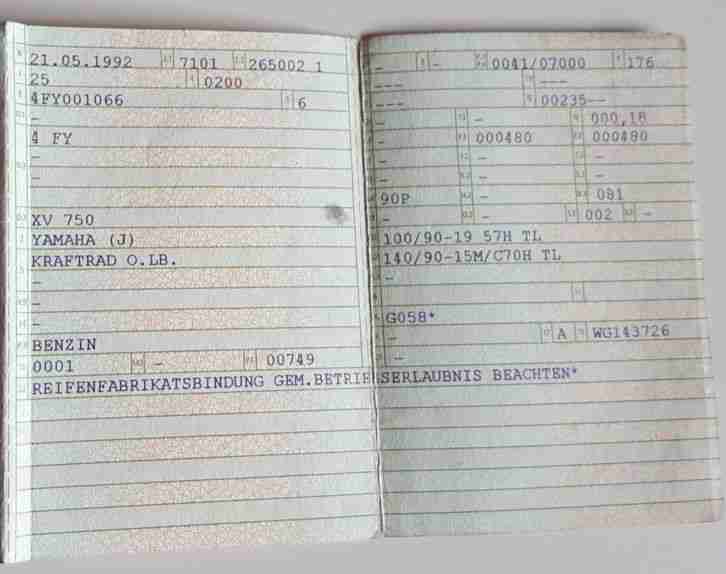 21.05.1992 7101 265002 1
25 0200
4FY001066 6
-
4 FY
-
-
XV 750
YAMAHA (J)
KRAFTRAD O.LB.
-
-
-
BENZIN
0001 - 00749
- - 0041/07000 176
--- ---
--- 00235--
- - 000,18
- 000480 000480
- - -
- - -
90P - 081
- - 002 -
100/90-19 57H TL
140/90-15M/C70H TL
-
G058*
- A WG143726
-
REIFENFABRIKATSBINDUNG GEM.BETRIEBSERLAUBNIS BEACHTEN*